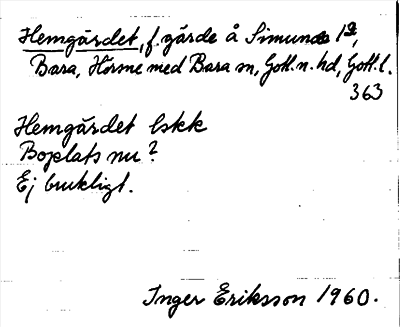 Hemgärdet, f. gärde å Simunds 1a,
Bara, Hörsne med Bara sn, Gotl. n. hd, Gotl. l.
363
Hemgärdet lskk
Boplats nu?
Ej brukligt.
Inger Eriksson 1960.